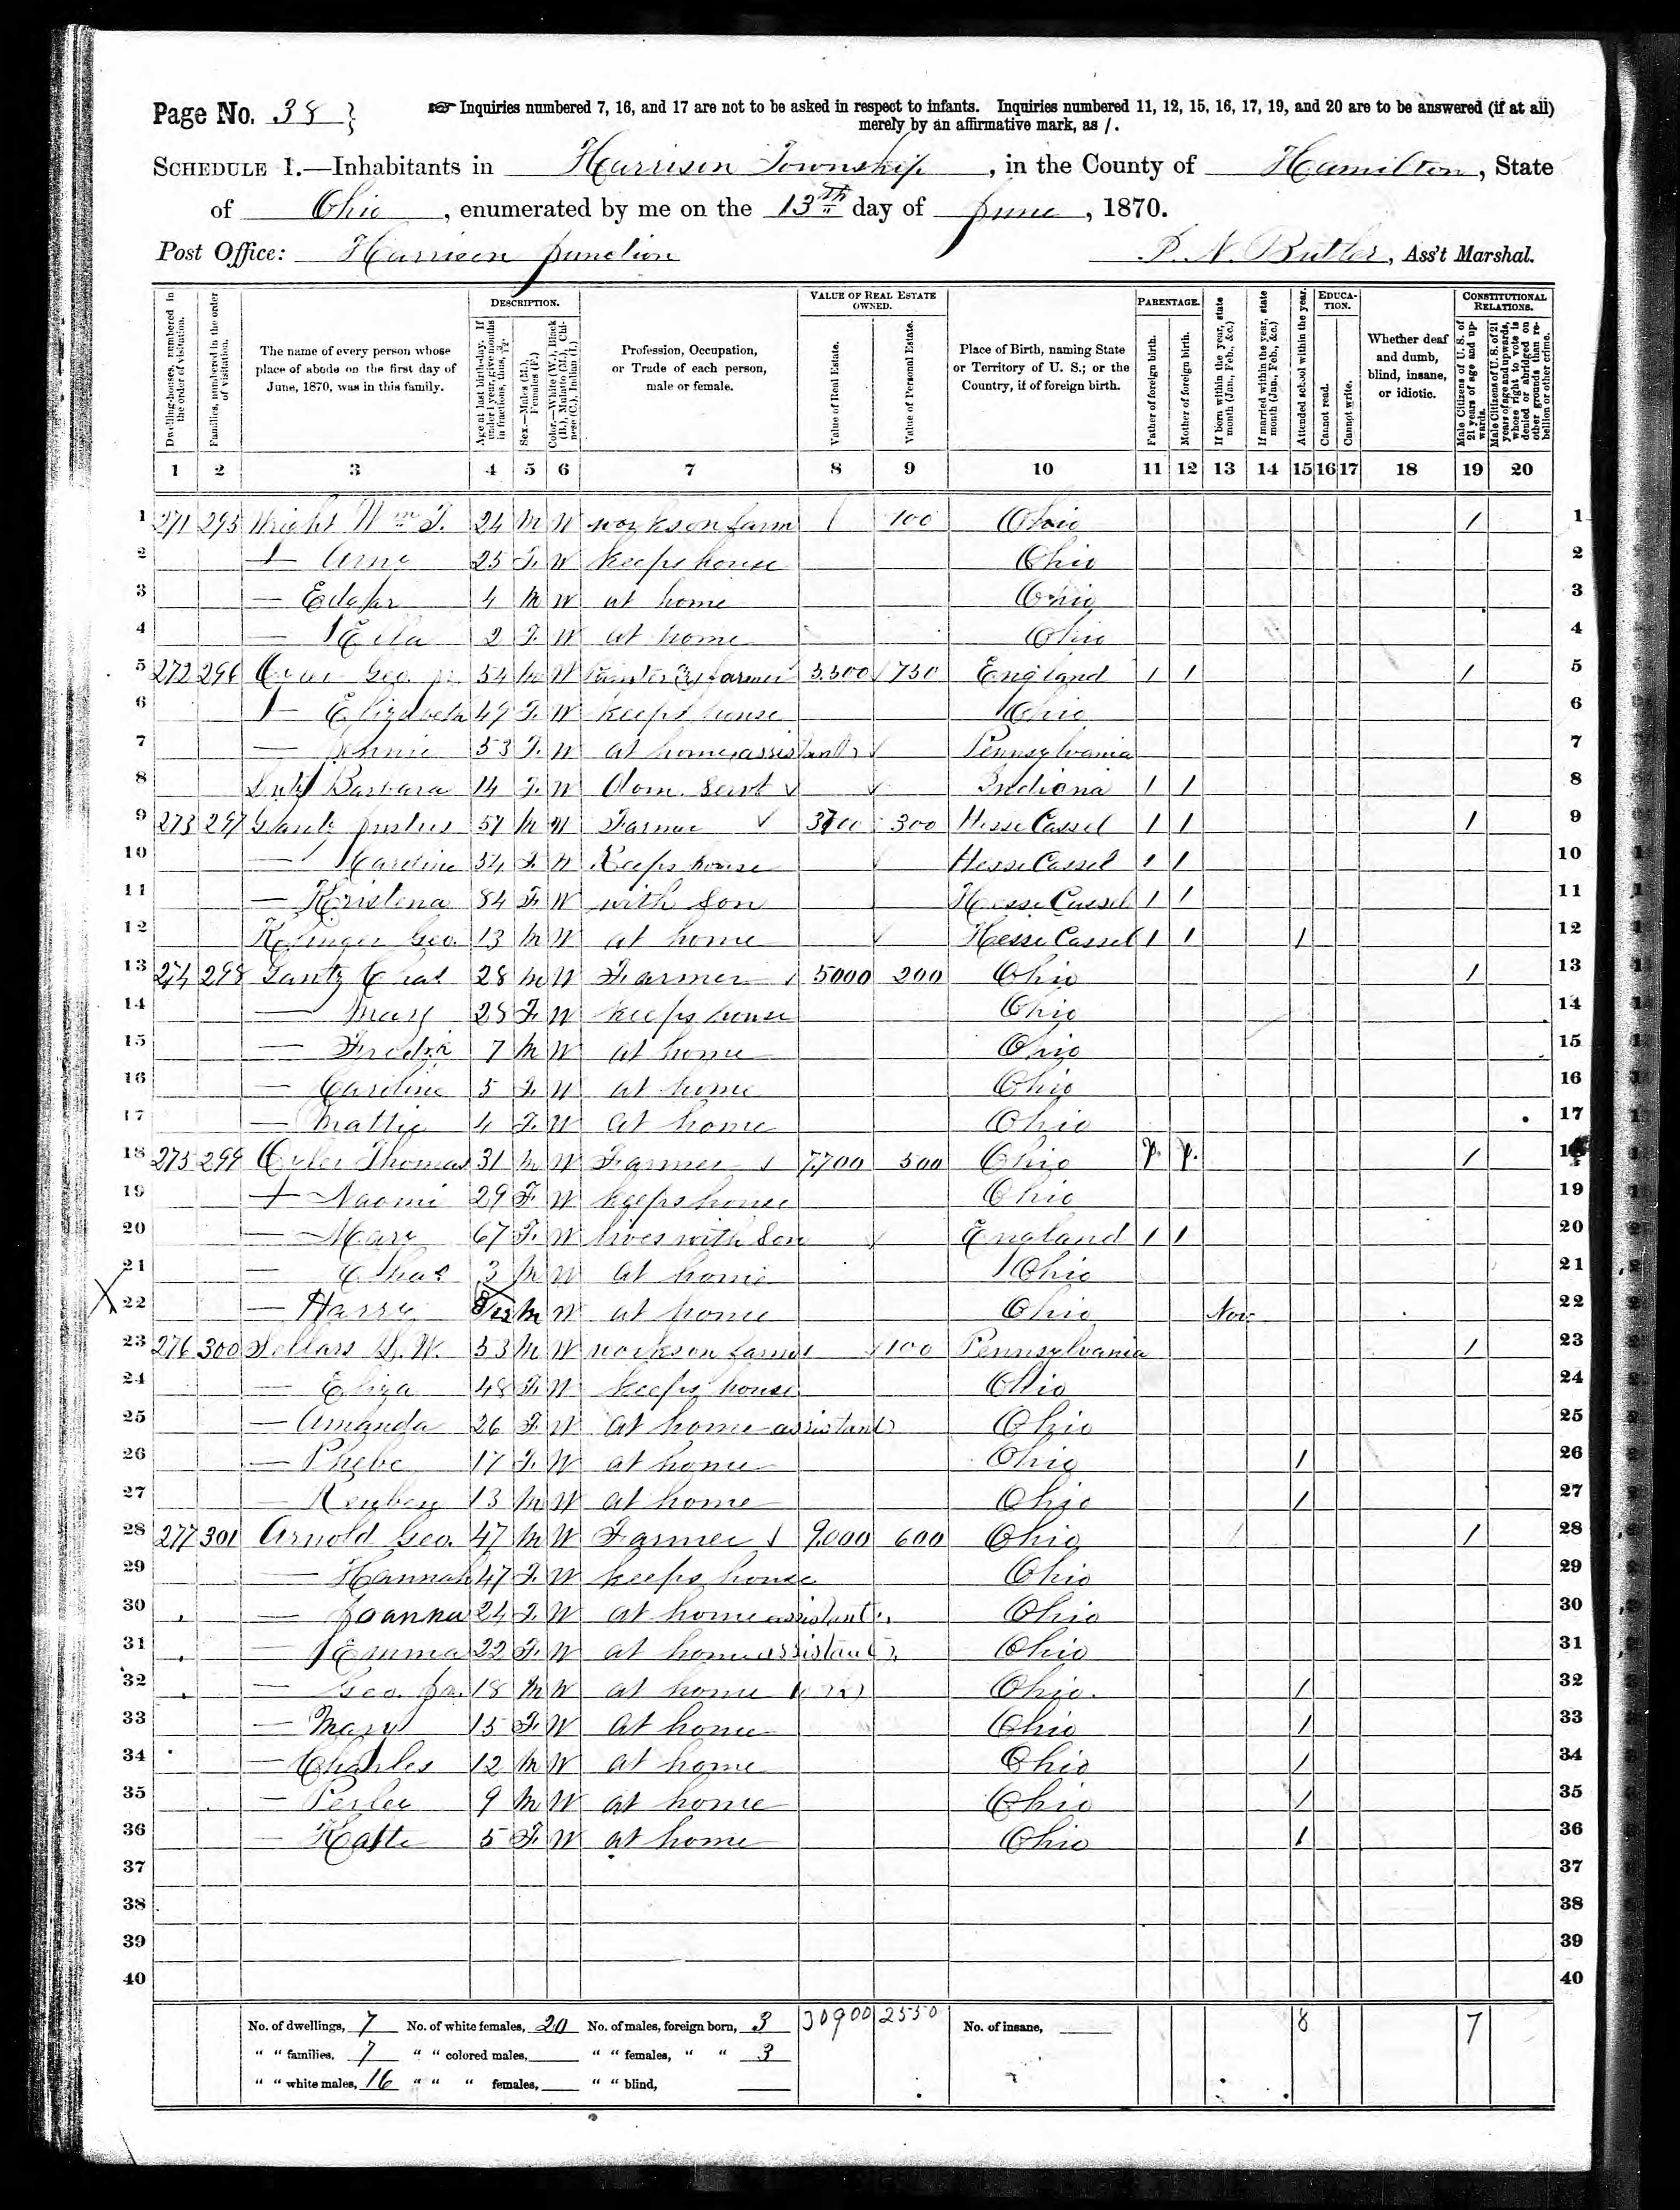 Page No. 38
Inquiries numbered 7, 16, and 17 are not to be asked in respect to infants. Inquiries numbered 11, 12, 15, 16, 17, 19, and 20 are to be answered (if at all)
merely by an affirmative mark, as /.
SCHEDULE 1.—Inhabitants in Harrison Township, in the County of Hamilton, State
of Ohio, enumerated by me on the 13th day of June, 1870.
Post Office: Harrison Junction
P. N. Butler, Ass't Marshal.
Dwelling-houses, numbered in the order of visitation.
Families, numbered in the order of visitation.
The name of every person whose place of abode on the first day of June, 1870, was in this family.
DESCRIPTION.
Age at last birth-day. If under 1 year, give months in fractions, thus, 3/12.
Sex.—Males (M.), Females (F.)
Color.—White (W.), Black (B.), Mulatto (M.), Chinese (C.), Indian (I.)
Profession, Occupation, or Trade of each person, male or female.
VALUE OF REAL ESTATE OWNED.
Value of Real Estate.
Value of Personal Estate.
Place of Birth, naming State or Territory of U. S.; or the Country, if of foreign birth.
PARENTAGE.
Father of foreign birth.
Mother of foreign birth.
If born within the year, state month (Jan., Feb., &c.)
If married within the year, state month (Jan., Feb., &c.)
Attended school within the year.
EDUCATION.
Cannot read.
Cannot write.
Whether deaf and dumb, blind, insane, or idiotic.
CONSTITUTIONAL RELATIONS.
Male Citizens of U. S. of 21 years of age and upwards.
Male Citizens of U. S. of 21 years of age and upwards, whose right to vote is denied or abridged on other grounds than rebellion or other crime.
1 2 3 4 5 6 7 8 9 10 11 12 13 14 15 16 17 18 19 20
1 271 295 Wright Wm T. 24 M W works on farm 100 Ohio / 1
2 — 25 F. W keeps house Ohio 2
3 — Edgar 4 M W at home Ohio 3
4 — Ella 2 F. W at home Ohio 4
5 272 296 Geo 54 M W farmer 5.500 750 England / / / 5
6 — Elizabeth 49 F. W keeps house Ohio 6
7 — 53 F. W at home assistant Pennsylvania 7
8 Barbara 14 F. W Dom. Servt Indiana / / 8
9 273 297 Justus 57 M W Farmer 3700 300 Hesse Cassel / / / 9
10 — Caroline 54 F. W Keeps house Hesse Cassel / / 10
11 — Kristena 84 F. W with Son Hesse Cassel / / 11
12 Geo. 13 M W at home Hesse Cassel / / / 12
13 274 298 Gantz Chas 28 M W Farmer 5000 200 Ohio / 13
14 — Mary 28 F. W keeps house Ohio 14
15 — Fredrk 7 M W at home Ohio 15
16 — Caroline 5 F. W at home Ohio 16
17 — Mattie 4 F. W at home Ohio 17
18 275 299 Oyler Thomas 31 M W Farmer 7,700 500 Ohio / 18
19 — Naomi 29 F. W keeps house Ohio 19
20 — Mary 67 F. W lives with Son England / / 20
21 — Chas 3 M W at home Ohio 21
22 — Harry 8/12 M W at home Ohio Nov. 22
23 276 300 Sellars W. 53 M W works on farm 100 Pennsylvania / 23
24 — Eliza 48 F. W keeps house Ohio 24
25 — Amanda 26 F. W at home assistant Ohio 25
26 — Phebe 17 F. W at home Ohio / 26
27 — Reuben 13 M W at home Ohio / 27
28 277 301 Arnold Geo. 47 M W Farmer 9,000 600 Ohio / 28
29 — Hannah 47 F. W keeps house Ohio 29
30 — Joanna 24 F. W at home assistant Ohio 30
31 — Emma 22 F. W at home assistant Ohio 31
32 — Geo. Jr. 18 M W at home Ohio. / 32
33 — Mary 15 F. W at home Ohio / 33
34 — Charles 12 M W at home Ohio / 34
35 — Perley 9 M W at home Ohio / 35
36 — Katte 5 F. W at home Ohio / 36
37 37
38 38
39 39
40 40
No. of dwellings, 7 No. of white females, 20 No. of males, foreign born, 3 30900 2550 No. of insane, 8 7
" " families, 7 " " colored males, " " females, " " 3
" " white males, 16 " " " females, " " blind,